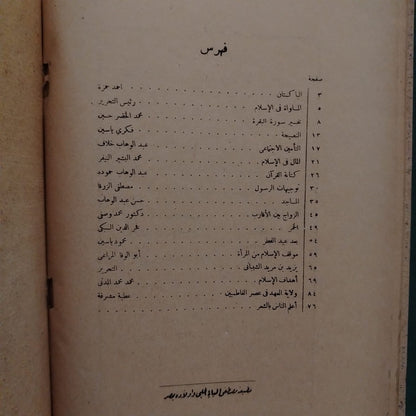 فهرس
صفحة
٣ الباكستان . . . . احمد حمزة
٥ المساواة فى الإسلام . . . . رئيس التحرير
٨ تفسير سورة البقرة . . . . محمد الخضر حسين
١٣ النصيحة . . . . فكرى ياسين
١٧ التأمين الاجتماعى . . . . عبد الوهاب خلاف
٢١ المال فى الإسلام . . . . محمد البشير النيفر
٢٦ كتابة القرآن . . . . عبد الوهاب حموده
٣٠ توجيهات الرسول . . . . مصطفى الزرقا
٣٥ المساجد . . . . حسن عبد الوهاب
٤٥ الزواج بين الأقارب . . . . دكتور محمد وصفى
٤٩ الخمر . . . . فخر الدين السبكى
٥٤ بعد عيد الفطر . . . . محمود ياسين
٥٩ موقف الإسلام من المرأة . . . . أبو الوفا المراغى
٦٥ يزيد بن مزيد الشيبانى . . . . التحرير
٦٩ أهداف الإسلام . . . . محمد محمد المدنى
٨٤ ولاية العهد فى عصر الفاطميين . . . . عطية مشرفة
٧٦ أعلم الناس بالشعر . . . .
مطبعة مصطفى البابى الحلبى وأولاده بمصر